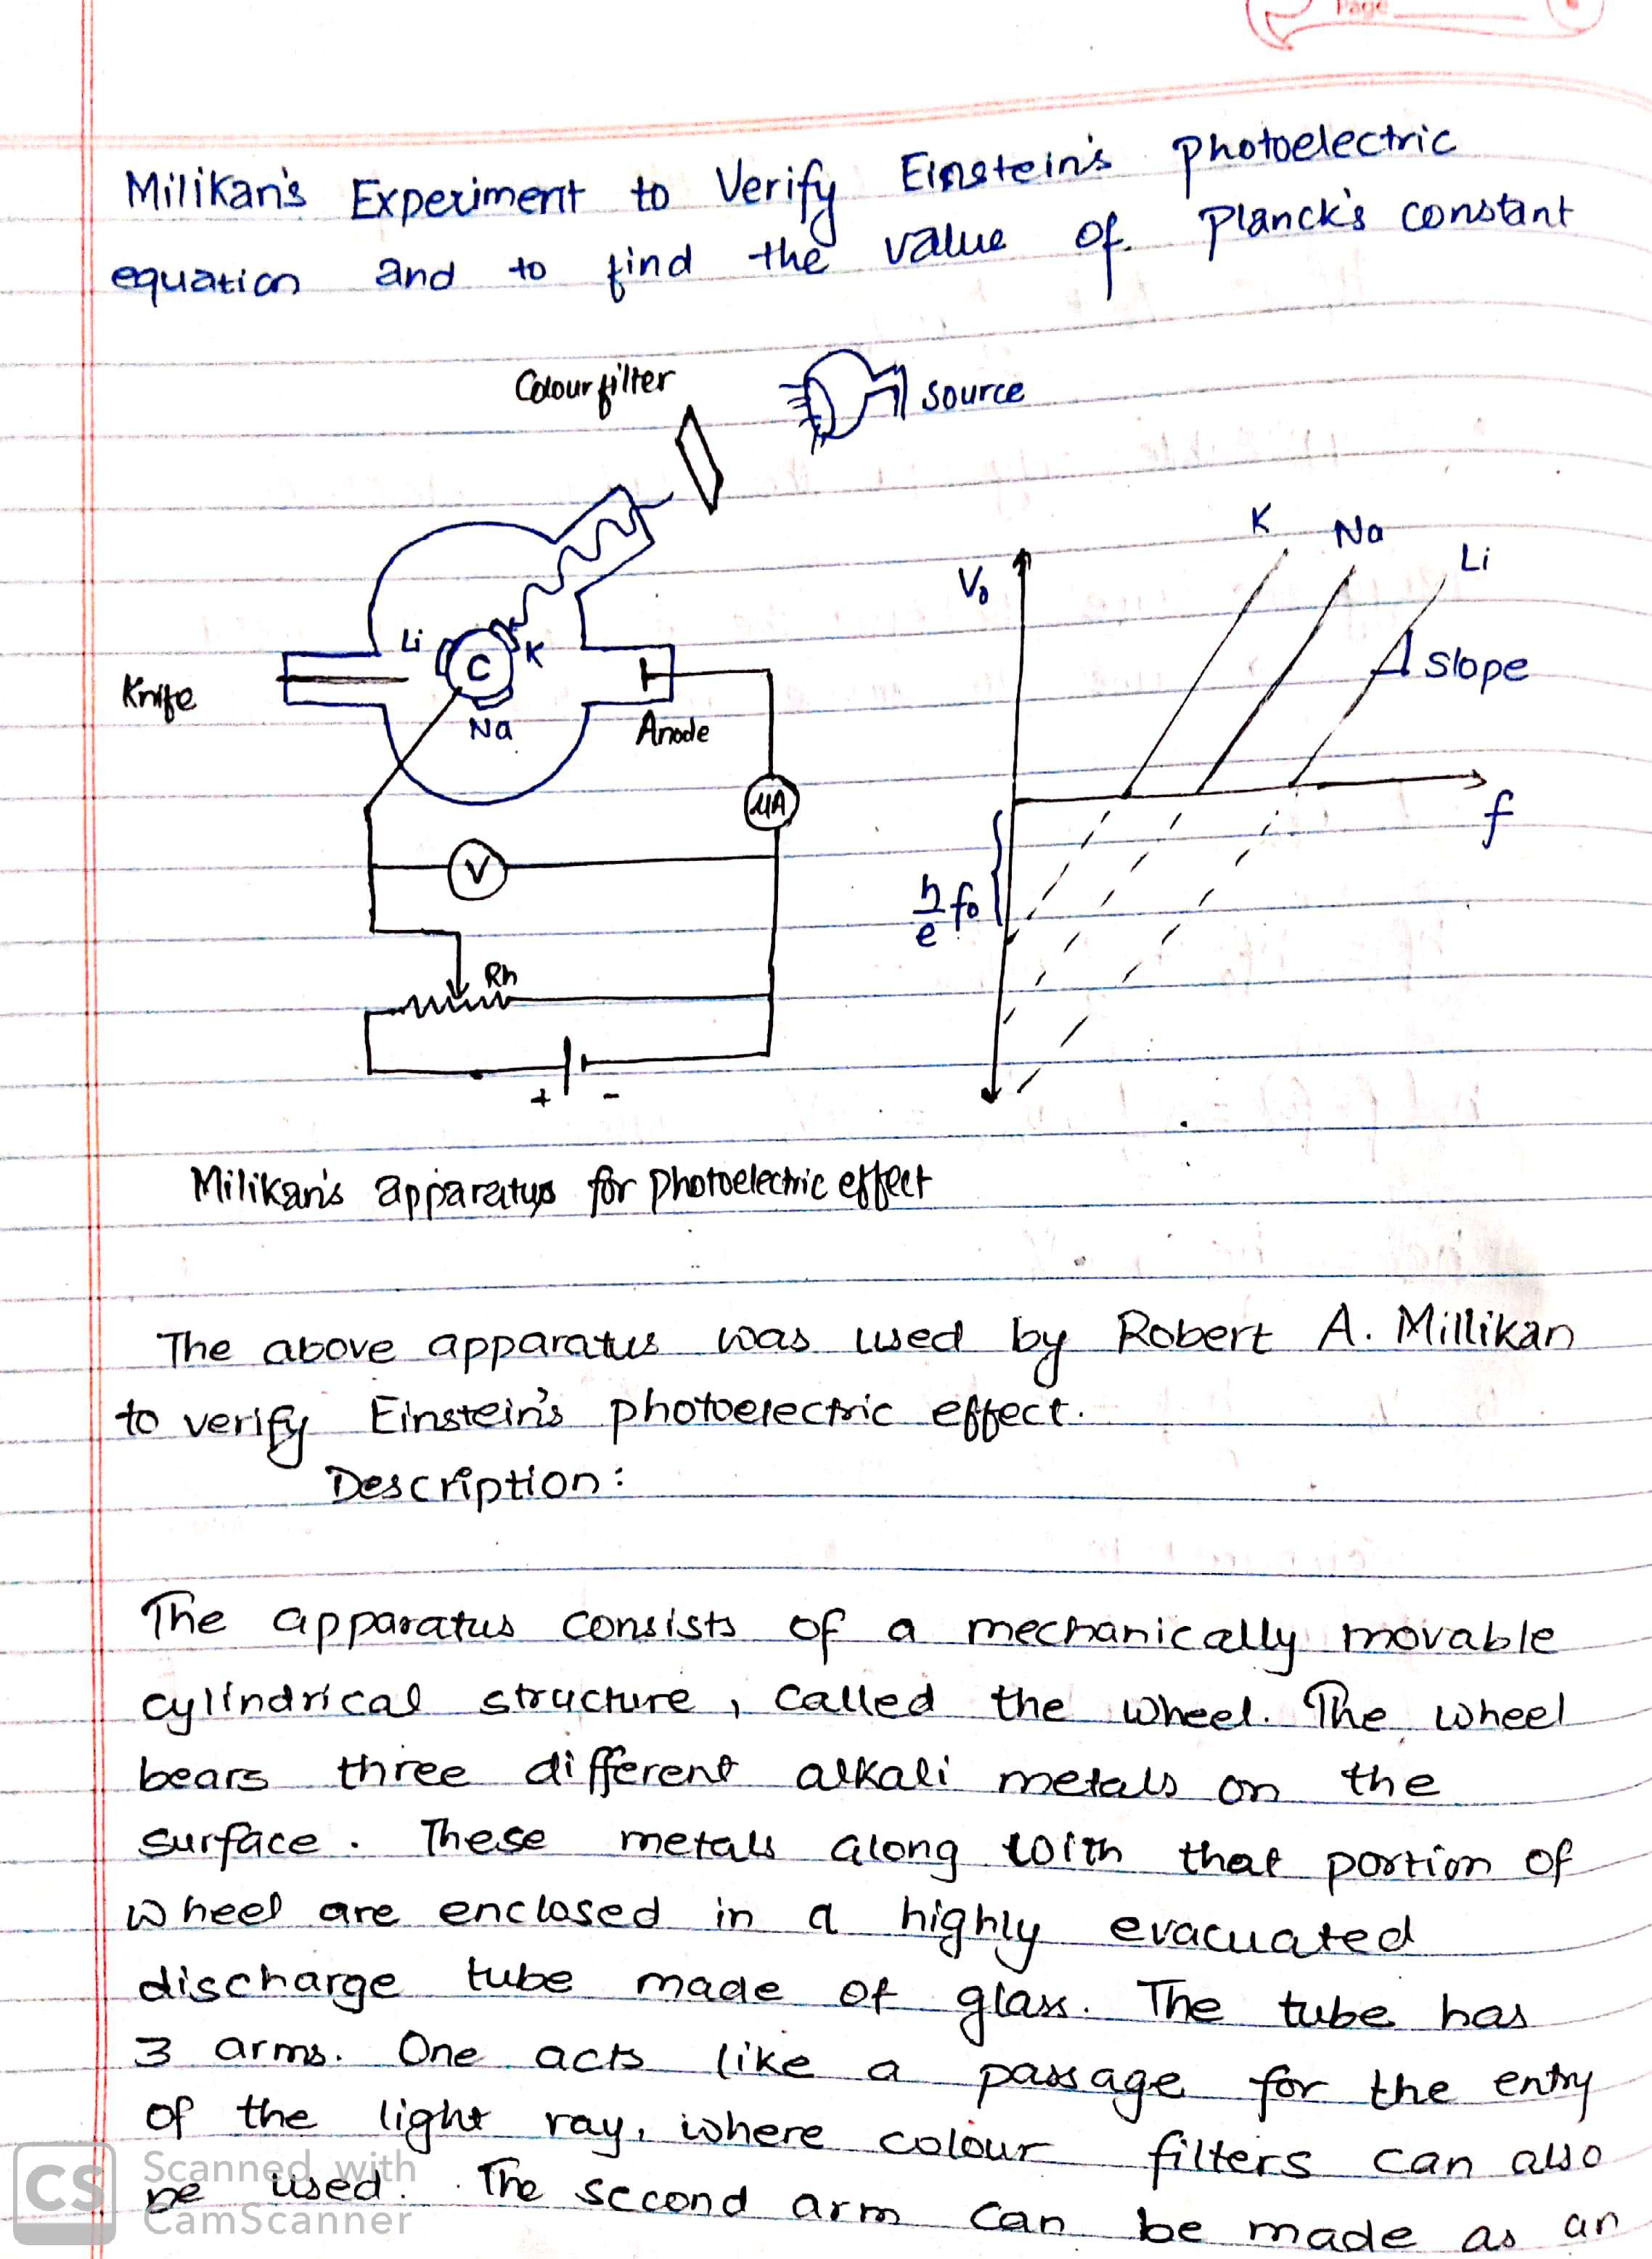 Page
Milikan's Experiment to Verify Einstein's photoelectric
equation and to find the value of planck's constant
Colour filter
source
K
Na
Li
V₀
Li
C
K
slope
Knife
Na
Anode
μA
f
V
h/e f₀
Rh
+
-
Milikan's apparatus for photoelectric effect
The above apparatus was used by Robert A. Millikan
to verify Einstein's photoelectric effect.
Description:
The apparatus consists of a mechanically movable
cylindrical structure, called the wheel. The wheel
bears three different alkali metals on the
surface. These metals along with that portion of
wheel are enclosed in a highly evacuated
discharge tube made of glass. The tube has
3 arms. One acts like a passage for the entry
of the light ray, where colour filters can also
be used. The second arm can be made as an
CS
Scanned with
CamScanner